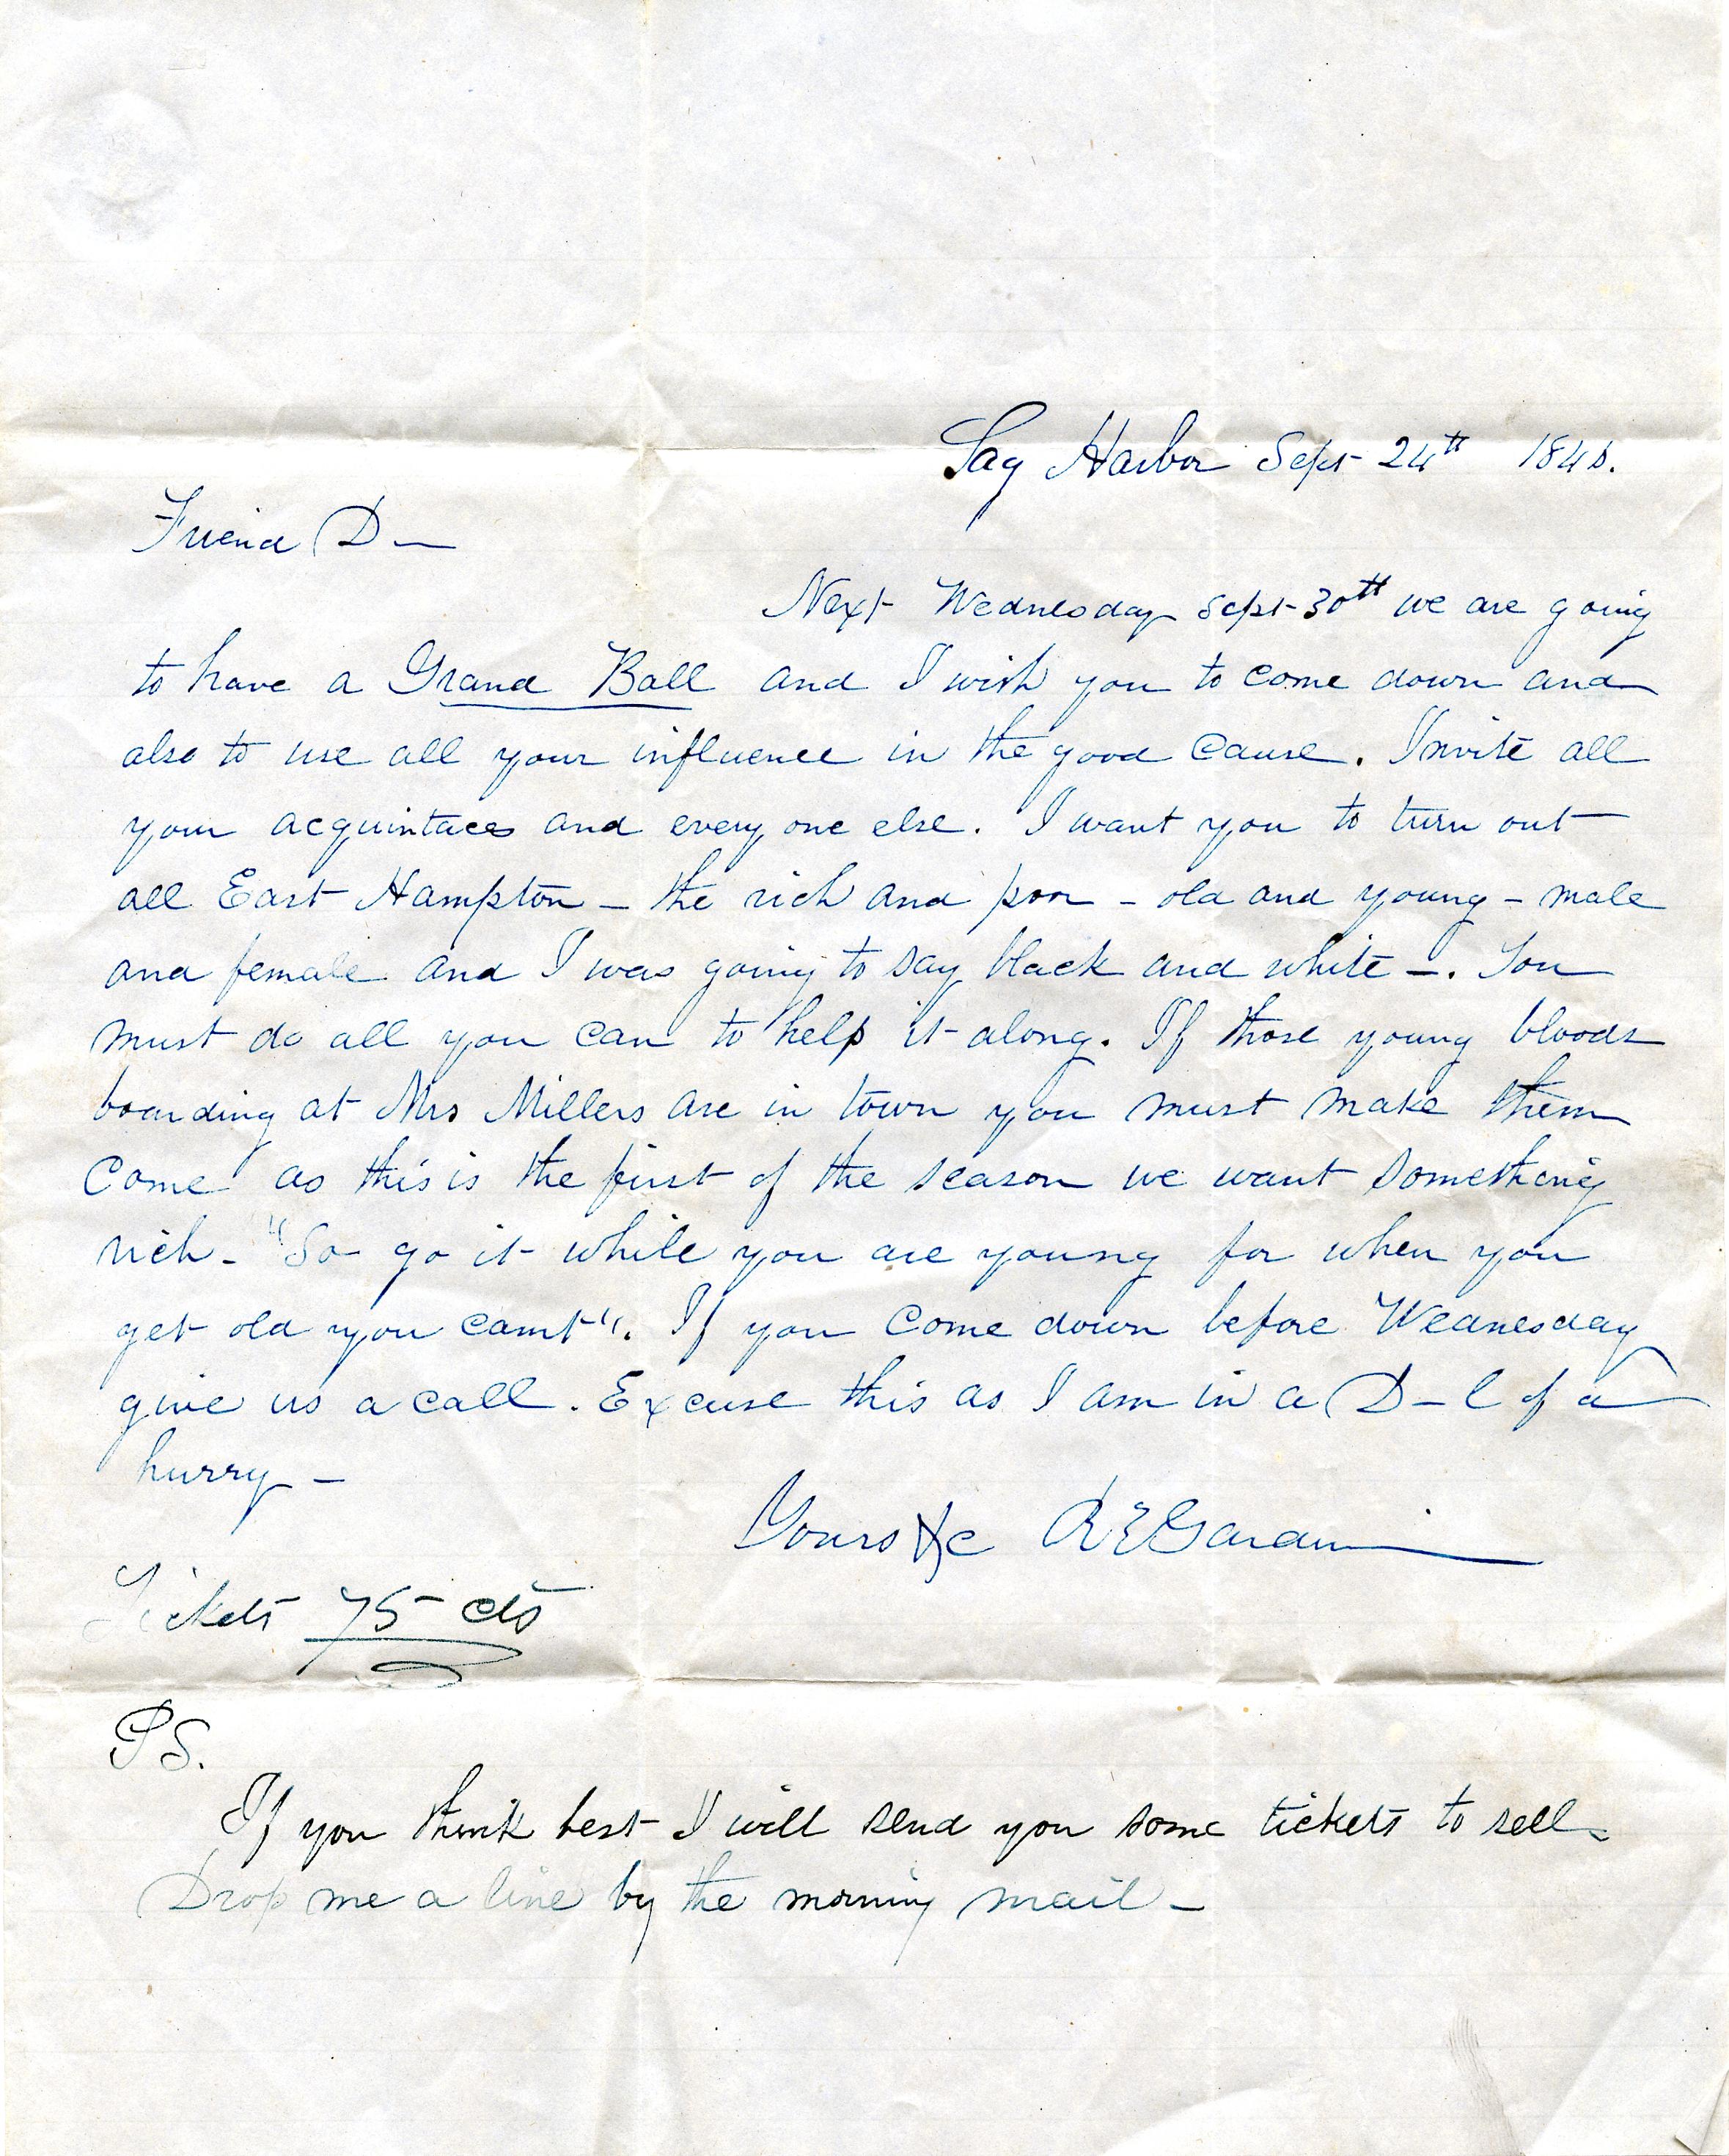 Sag Harbor Sept 24th 1846.
Friend D—
Next Wednesday Sept 30th we are going
to have a Grand Ball and I wish you to come down and
also to use all your influence in the good cause. Invite all
your acquintaces and every one else. I want you to turn out
all East Hampton – the rich and poor – old and young – male
and female and I was going to say black and white –. You
must do all you can to help it along. If those young bloods
boarding at Mrs Millers are in town you must make them
come as this is the first of the season we want something
rich – "So go it while you are young for when you
get old you cannt". If you come down before Wednesday
give us a call. Excuse this as I am in a D–l of a
hurry –
Yours &c R E
Tickets 75 cts
PS.
If you think best I will send you some tickets to sell –
Drop me a line by the morning mail –